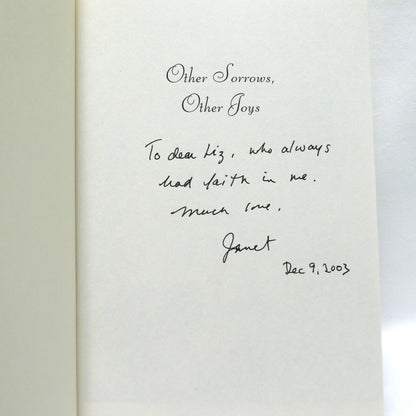 Other Sorrows,
Other Joys
To dear Liz, who always
had faith in me.
Much love,
Janet
Dec 9, 2003